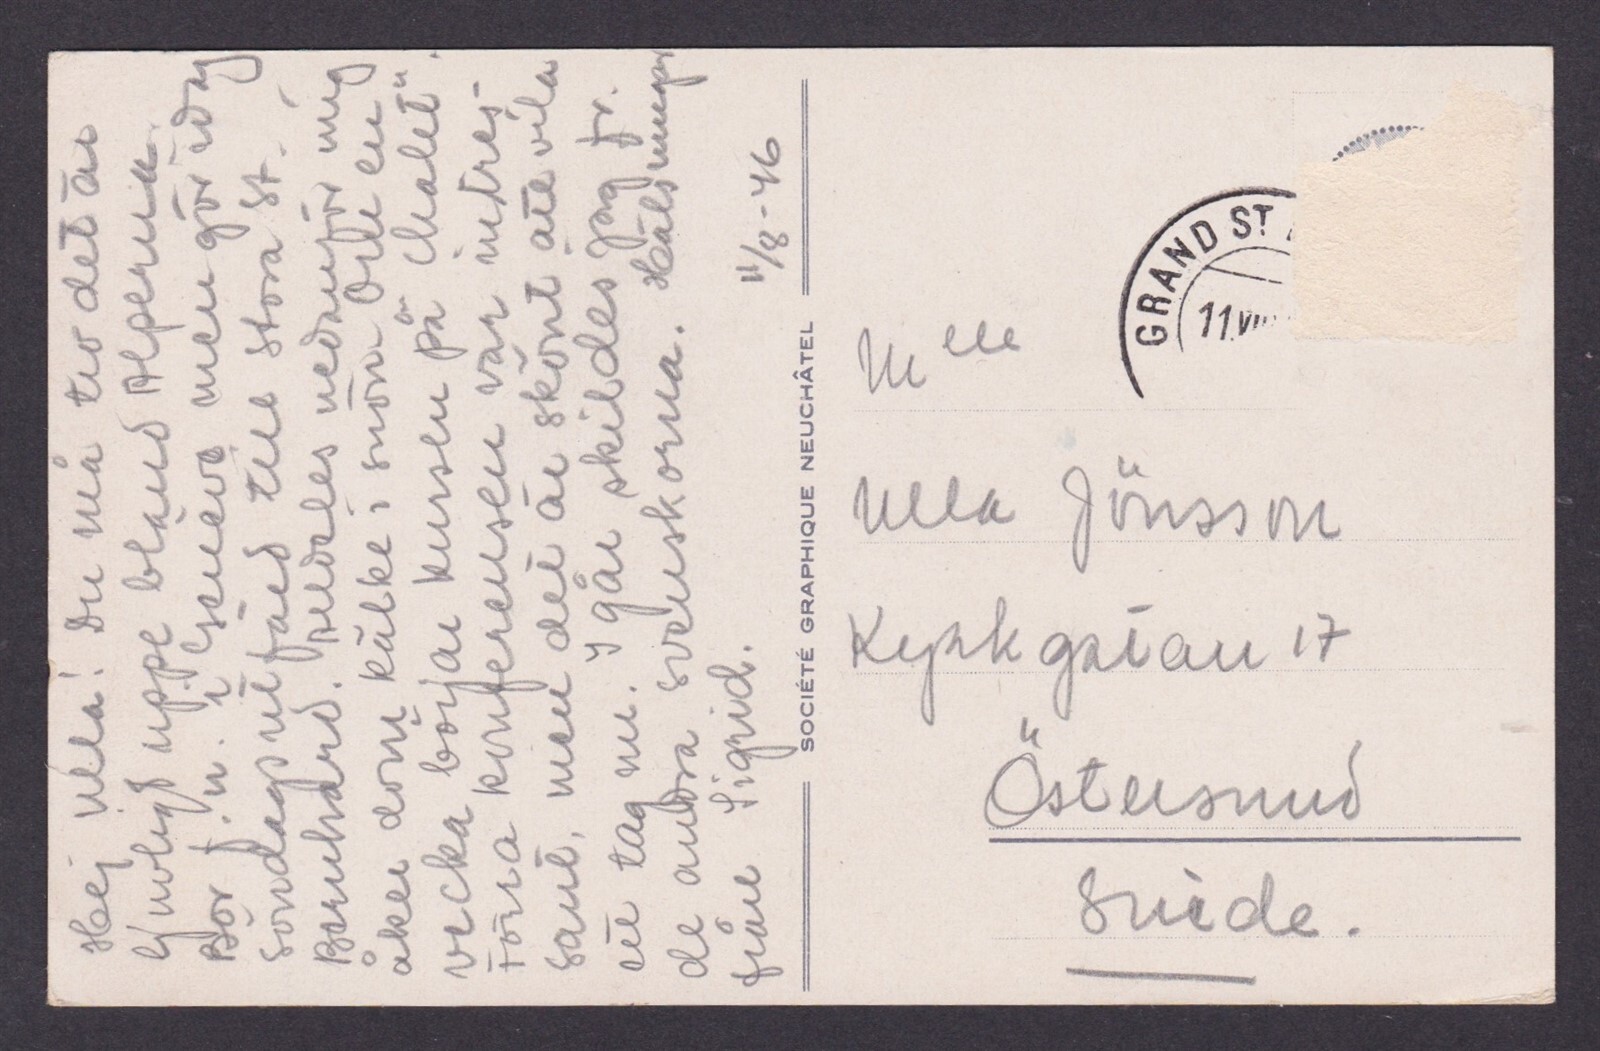 Hej Ulla! Du må tro det är
ljuvligt uppe bland Alperna.
Bor f. n. i Genève men gör idag
söndagsutfärd till Stora St.
Bernhard. Alldeles nedanför mig
åker dom kälke i snön. Orkeu
vecka börjar kursen på "chalet".
Förra konferensen var intres-
sant, men det är skönt att vila
ett tag nu. I går skildes jag fr.
de andra svenskorna. Hälsningar
från Sigrid.
11/8-46
SOCIÉTÉ GRAPHIQUE NEUCHÂTEL
GRAND ST
11 VIII
Mlle
Ulla Jönsson
Kyrkgatan 17
Östersund
Suède.